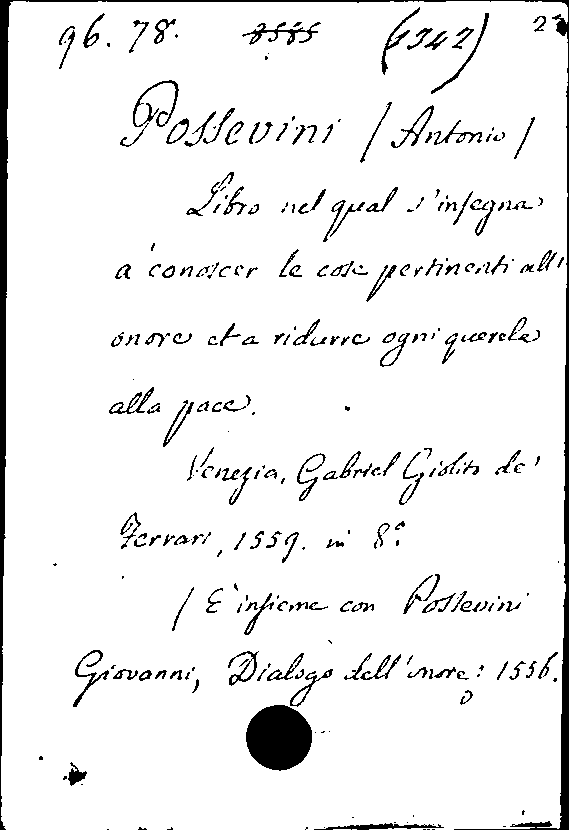 96. 78. 8585 (1342) 2
Possevini / Antonio /
Libro nel qual s'insegna
a' conoscer le cose pertinenti all'
onore et a ridurre ogni querela
alla pace.
Venezia, Gabriel Giolito de'
Ferrari, 1559. in 8.o
/ E' insieme con Possevini
Giovanni, Dialogo dell'onore: 1556.